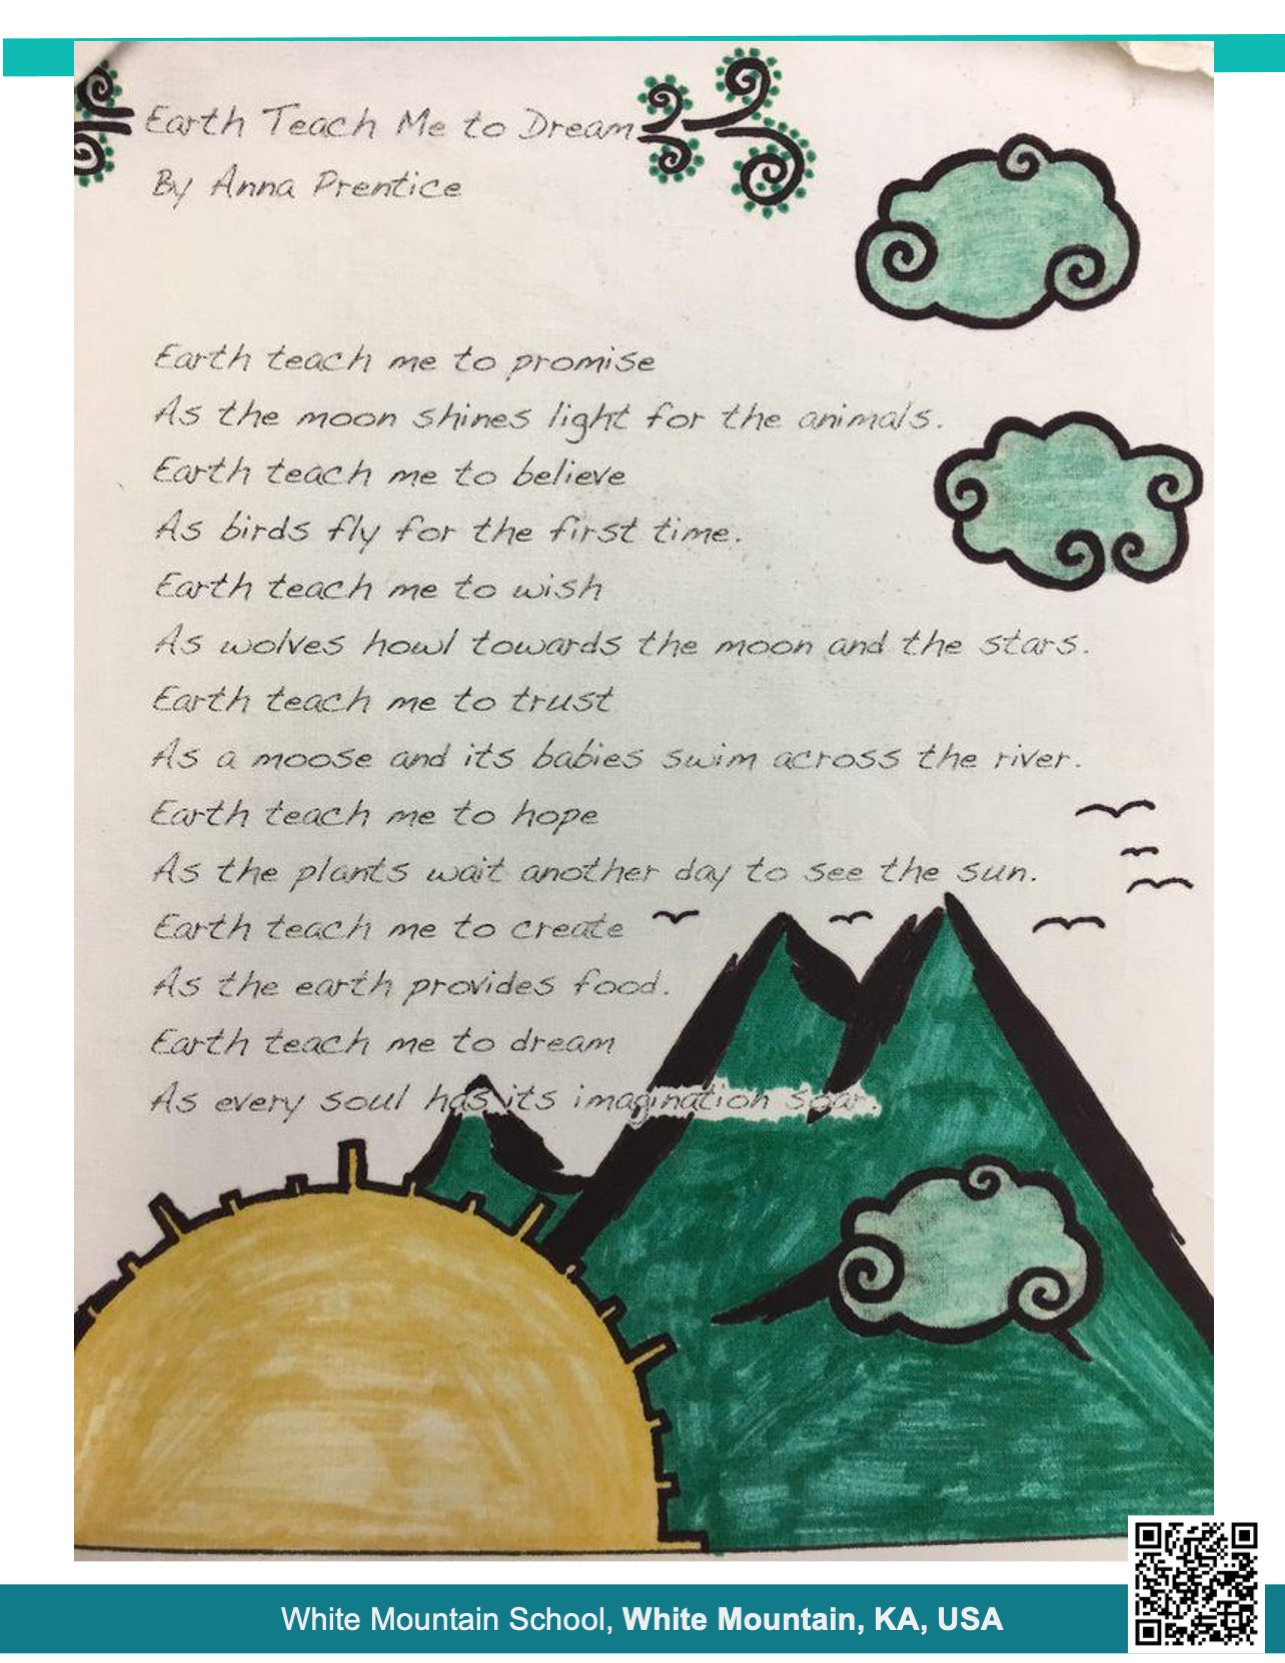 Earth Teach Me to Dream
By Anna Prentice
Earth teach me to promise
As the moon shines light for the animals.
Earth teach me to believe
As birds fly for the first time.
Earth teach me to wish
As wolves howl towards the moon and the stars.
Earth teach me to trust
As a moose and its babies swim across the river.
Earth teach me to hope
As the plants wait another day to see the sun.
Earth teach me to create
As the earth provides food.
Earth teach me to dream
As every soul has its imagination soar.
White Mountain School, White Mountain, KA, USA